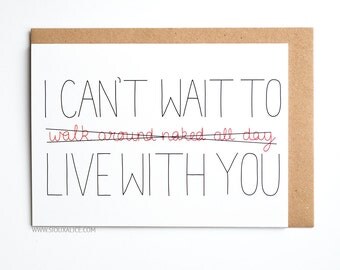 I CAN'T WAIT TO
walk around naked all day
LIVE WITH YOU
WWW.SIOUXALICE.COM